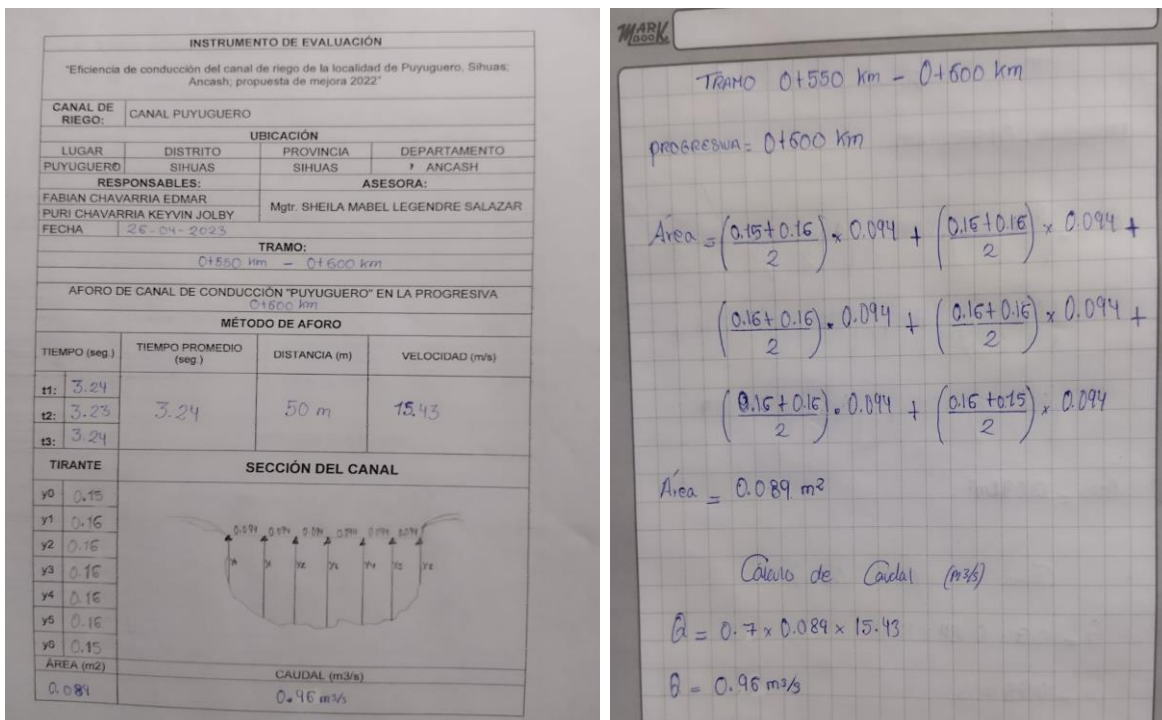 INSTRUMENTO DE EVALUACIÓN
"Eficiencia de conducción del canal de riego de la localidad de Puyuguero, Sihuas;
Ancash; propuesta de mejora 2022"
CANAL DE RIEGO: CANAL PUYUGUERO
UBICACIÓN
LUGAR DISTRITO PROVINCIA DEPARTAMENTO
PUYUGUERO SIHUAS SIHUAS ANCASH
RESPONSABLES: ASESORA:
FABIAN CHAVARRIA EDMAR
PURI CHAVARRIA KEYVIN JOLBY
Mgtr. SHEILA MABEL LEGENDRE SALAZAR
FECHA 26-04-2023
TRAMO:
0+550 km - 0+600 km
AFORO DE CANAL DE CONDUCCIÓN "PUYUGUERO" EN LA PROGRESIVA
0+600 km
MÉTODO DE AFORO
TIEMPO (seg.) TIEMPO PROMEDIO (seg.) DISTANCIA (m) VELOCIDAD (m/s)
t1: 3.24
t2: 3.23 3.24 50 m 15.43
t3: 3.24
TIRANTE SECCIÓN DEL CANAL
y0 0.15
y1 0.16
y2 0.16
y3 0.16
y4 0.16
y5 0.16
y6 0.15
0.094 0.094 0.094 0.094 0.094 0.094
ÁREA (m2) CAUDAL (m3/s)
0.089 0.96 m3/s
MARK
BOOK
TRAMO 0+550 km - 0+600 km
PROGRESIVA = 0+600 km
Área = (0.15+0.16/2) x 0.094 + (0.16+0.16/2) x 0.094 +
(0.16+0.16/2) x 0.094 + (0.16+0.16/2) x 0.094 +
(0.16+0.16/2) x 0.094 + (0.16+0.15/2) x 0.094
Área = 0.089 m2
Cálculo de Caudal (m3/s)
Q = 0.7 x 0.089 x 15.43
Q = 0.96 m3/s